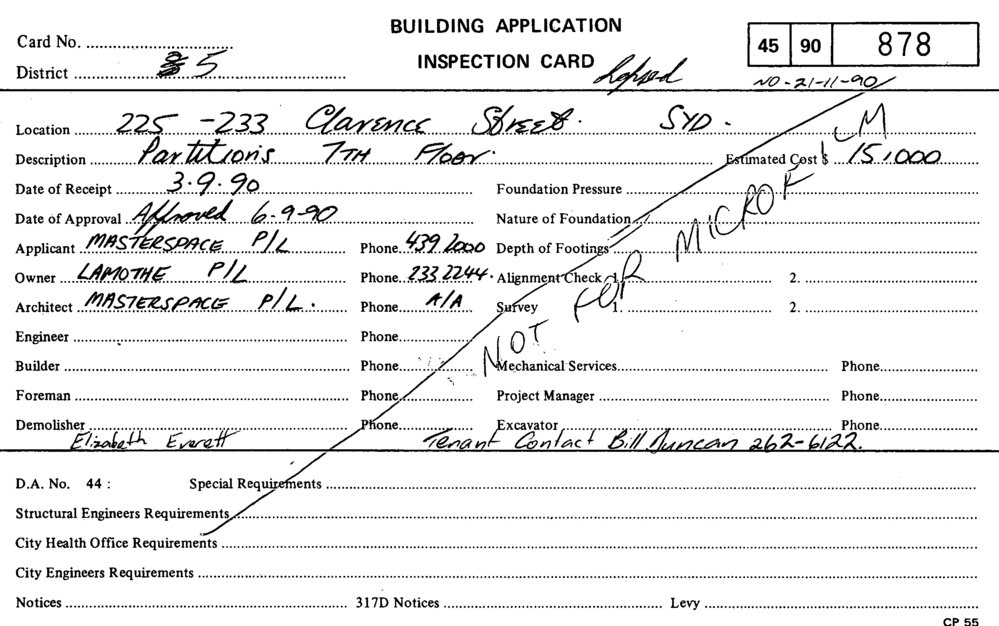 BUILDING APPLICATION
INSPECTION CARD
Card No.
District 5
45 90 878
Lapsed
NO - 21-11-90
Location 225 - 233 Clarence Street. SYD.
Description Partitions 7TH Floor. Estimated Cost $ 15,000
Date of Receipt 3.9.90 Foundation Pressure
Date of Approval Approved 6-9-90 Nature of Foundation
Applicant MASTERSPACE P/L Phone 439 2000 Depth of Footings
Owner LAMOTHE P/L Phone 233 2244. Alignment Check 1. 2.
Architect MASTERSPACE P/L. Phone A/A Survey 1. 2.
NOT FOR MICROFILM
Engineer Phone
Builder Phone Mechanical Services Phone
Foreman Phone Project Manager Phone
Demolisher Phone Excavator Phone
Elizabeth Everett Tenant Contact Bill Duncan 262-6122.
D.A. No. 44 : Special Requirements
Structural Engineers Requirements
City Health Office Requirements
City Engineers Requirements
Notices 317D Notices Levy
CP 55